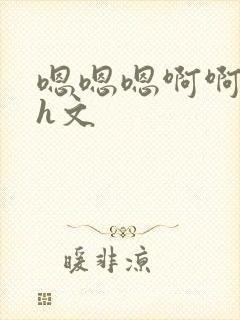 嗯嗯嗯啊啊
h文
暖非凉